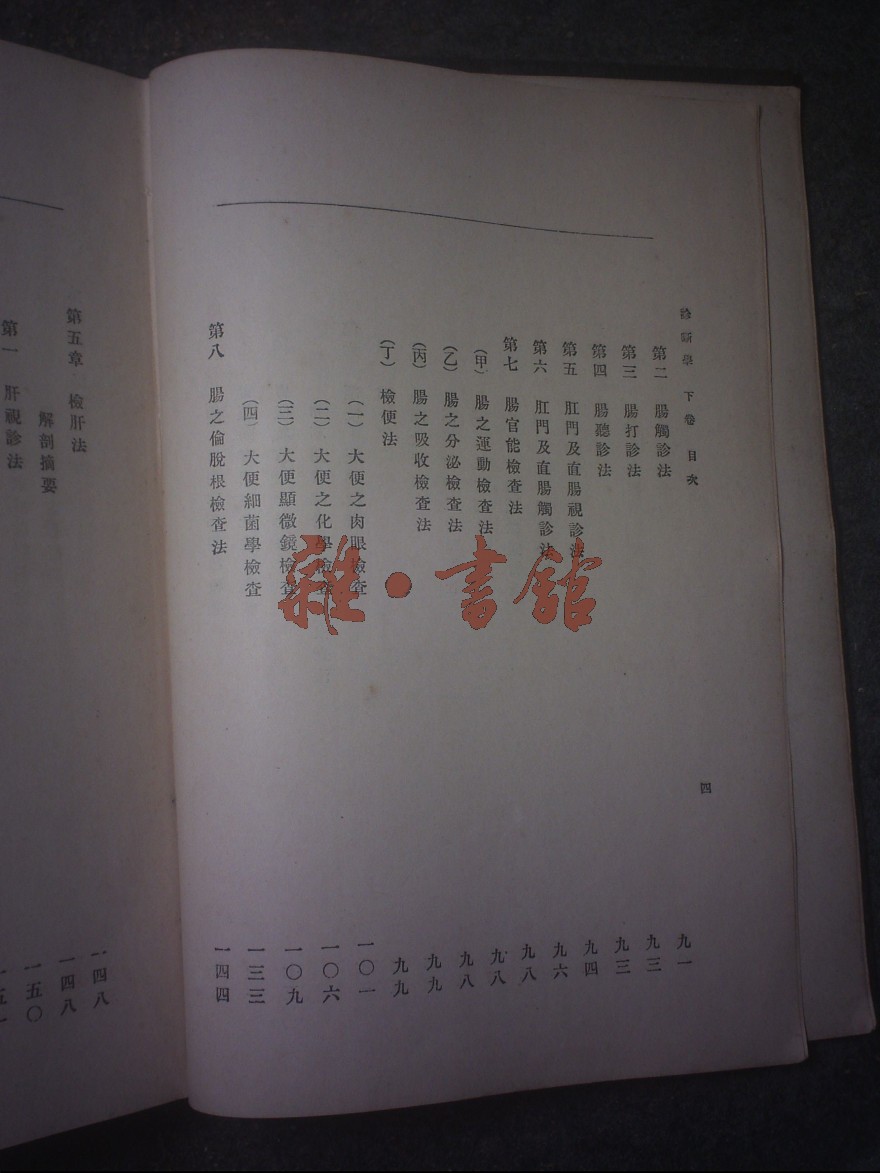 診斷學 下卷 目次
四
第二 腸觸診法 九一
第三 腸打診法 九三
第四 腸聽診法 九三
第五 肛門及直腸視診法 九四
第六 肛門及直腸觸診法 九六
第七 腸官能檢查法 九八
(甲) 腸之運動檢查法 九八
(乙) 腸之分泌檢查法 九八
(丙) 腸之吸收檢查法 九九
(丁) 檢便法 九九
(一) 大便之肉眼檢查 一〇一
(二) 大便之化學檢查 一〇六
(三) 大便顯微鏡檢查 一〇九
(四) 大便細菌學檢查 一三三
第八 腸之倫脫根檢查法 一四四
第五章 檢肝法 一四八
解剖摘要 一四八
第一 肝視診法 一五〇
雜·書館